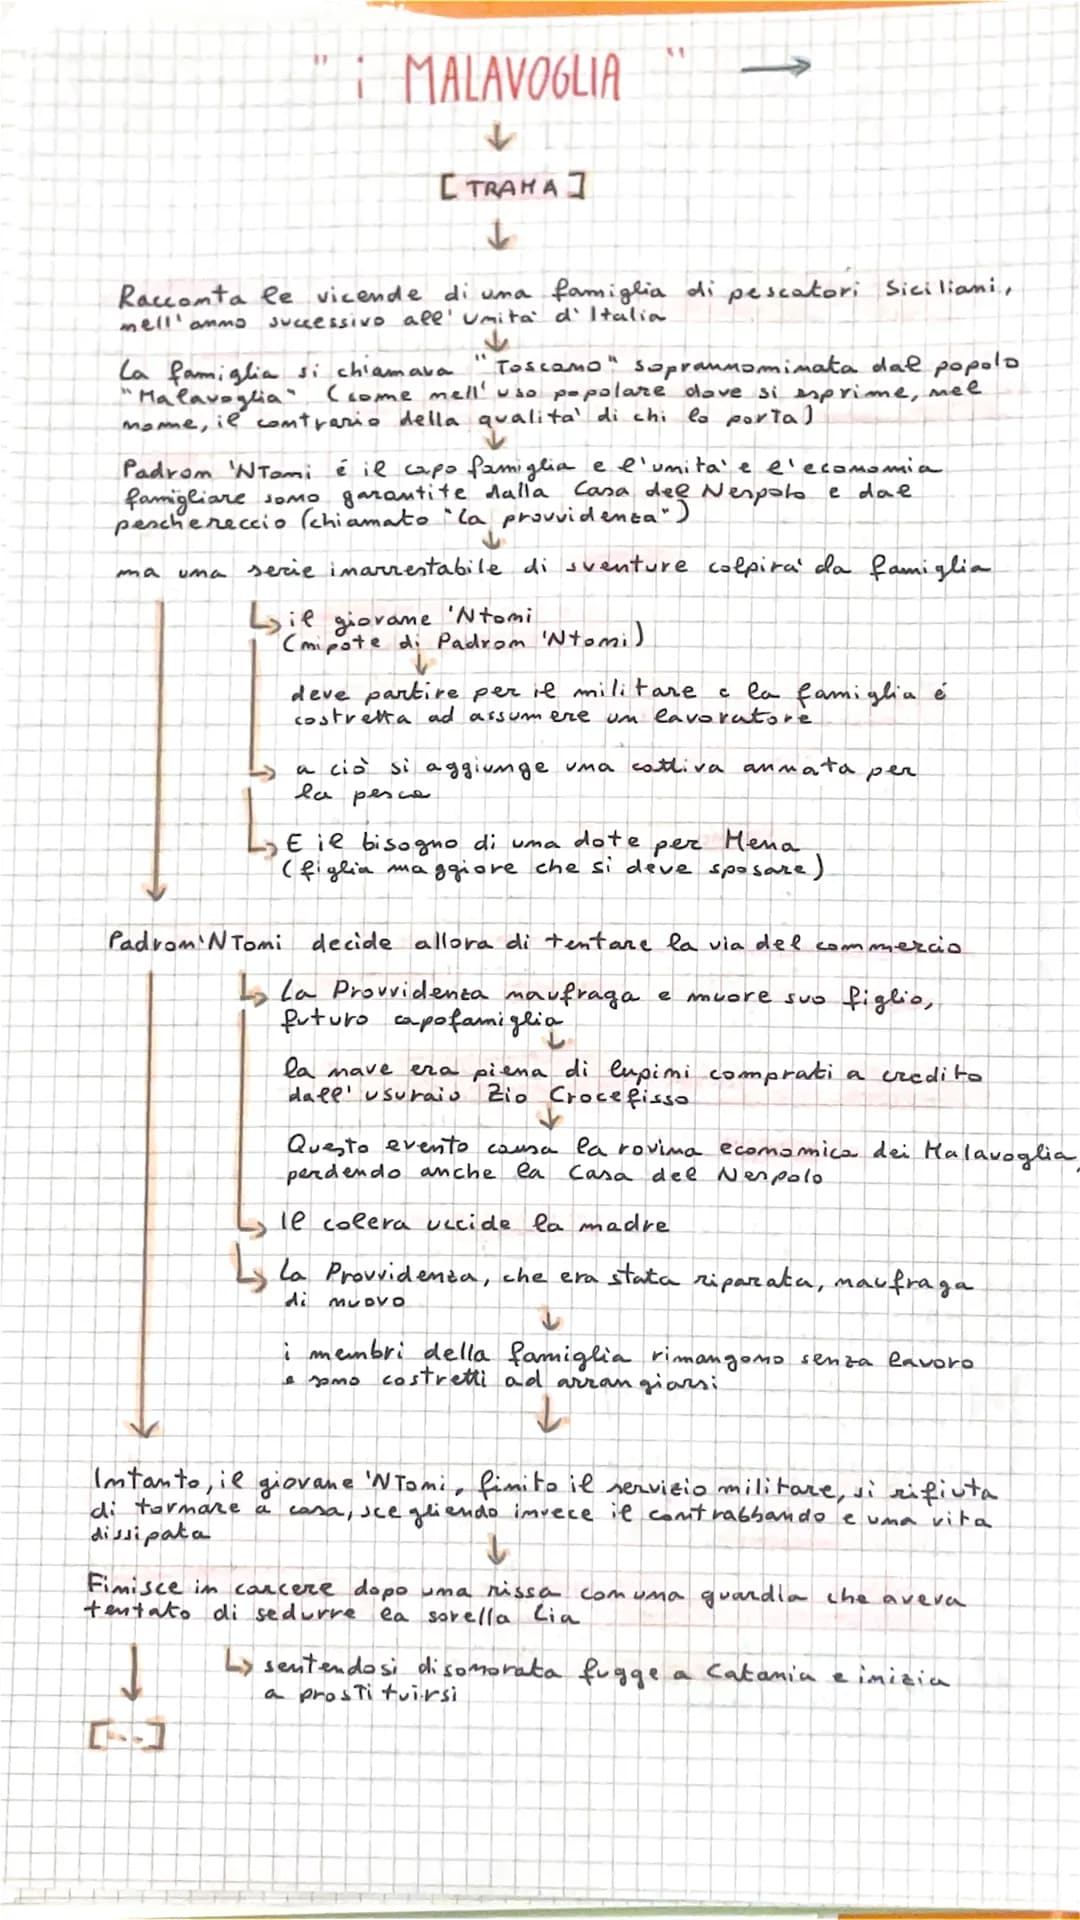 " i MALAVOGLIA "
[ TRAMA ]
Racconta le vicende di una famiglia di pescatori Siciliani,
nell'anno successivo all'unità d'Italia
La famiglia si chiamava "Toscano" soprannominata dal popolo
"Malavoglia" (come nell'uso popolare dove si esprime, nel
nome, il contrario della qualità di chi lo porta)
Padron 'NToni é il capo famiglia e l'unità e l'economia
famigliare sono garantite dalla Casa del Nespolo e dal
peschereccio (chiamato "la provvidenza")
ma una serie inarrestabile di sventure colpirà da famiglia
il giovane 'Ntoni
(nipote di Padron 'Ntoni)
deve partire per il militare e la famiglia é
costretta ad assumere un lavoratore
a ciò si aggiunge una cattiva annata per
la pesca
E il bisogno di una dote per Mena
(figlia maggiore che si deve sposare)
Padron'NToni decide allora di tentare la via del commercio
La Provvidenza naufraga e muore suo figlio,
futuro capofamiglia
la nave era piena di lupini comprati a credito
dall'usuraio Zio Crocefisso
Questo evento causa la rovina economica dei Malavoglia,
perdendo anche la Casa del Nespolo
Il colera uccide la madre
La Provvidenza, che era stata riparata, naufraga
di nuovo
i membri della famiglia rimangono senza lavoro
e sono costretti ad arrangiarsi
Intanto, il giovane 'NToni, finito il servizio militare, si rifiuta
di tornare a casa, scegliendo invece il contrabbando e una vita
dissipata
Finisce in carcere dopo una rissa con una guardia che aveva
tentato di sedurre la sorella Lia
sentendosi disonorata fugge a Catania e inizia
a prostituirsi
[...]